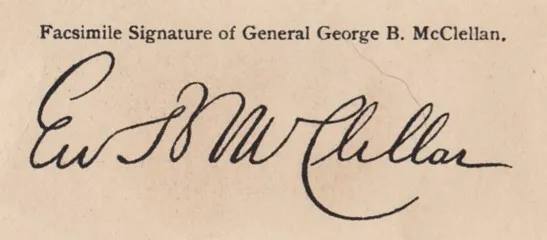 Facsimile Signature of General George B. McClellan.
Geo B McClellan